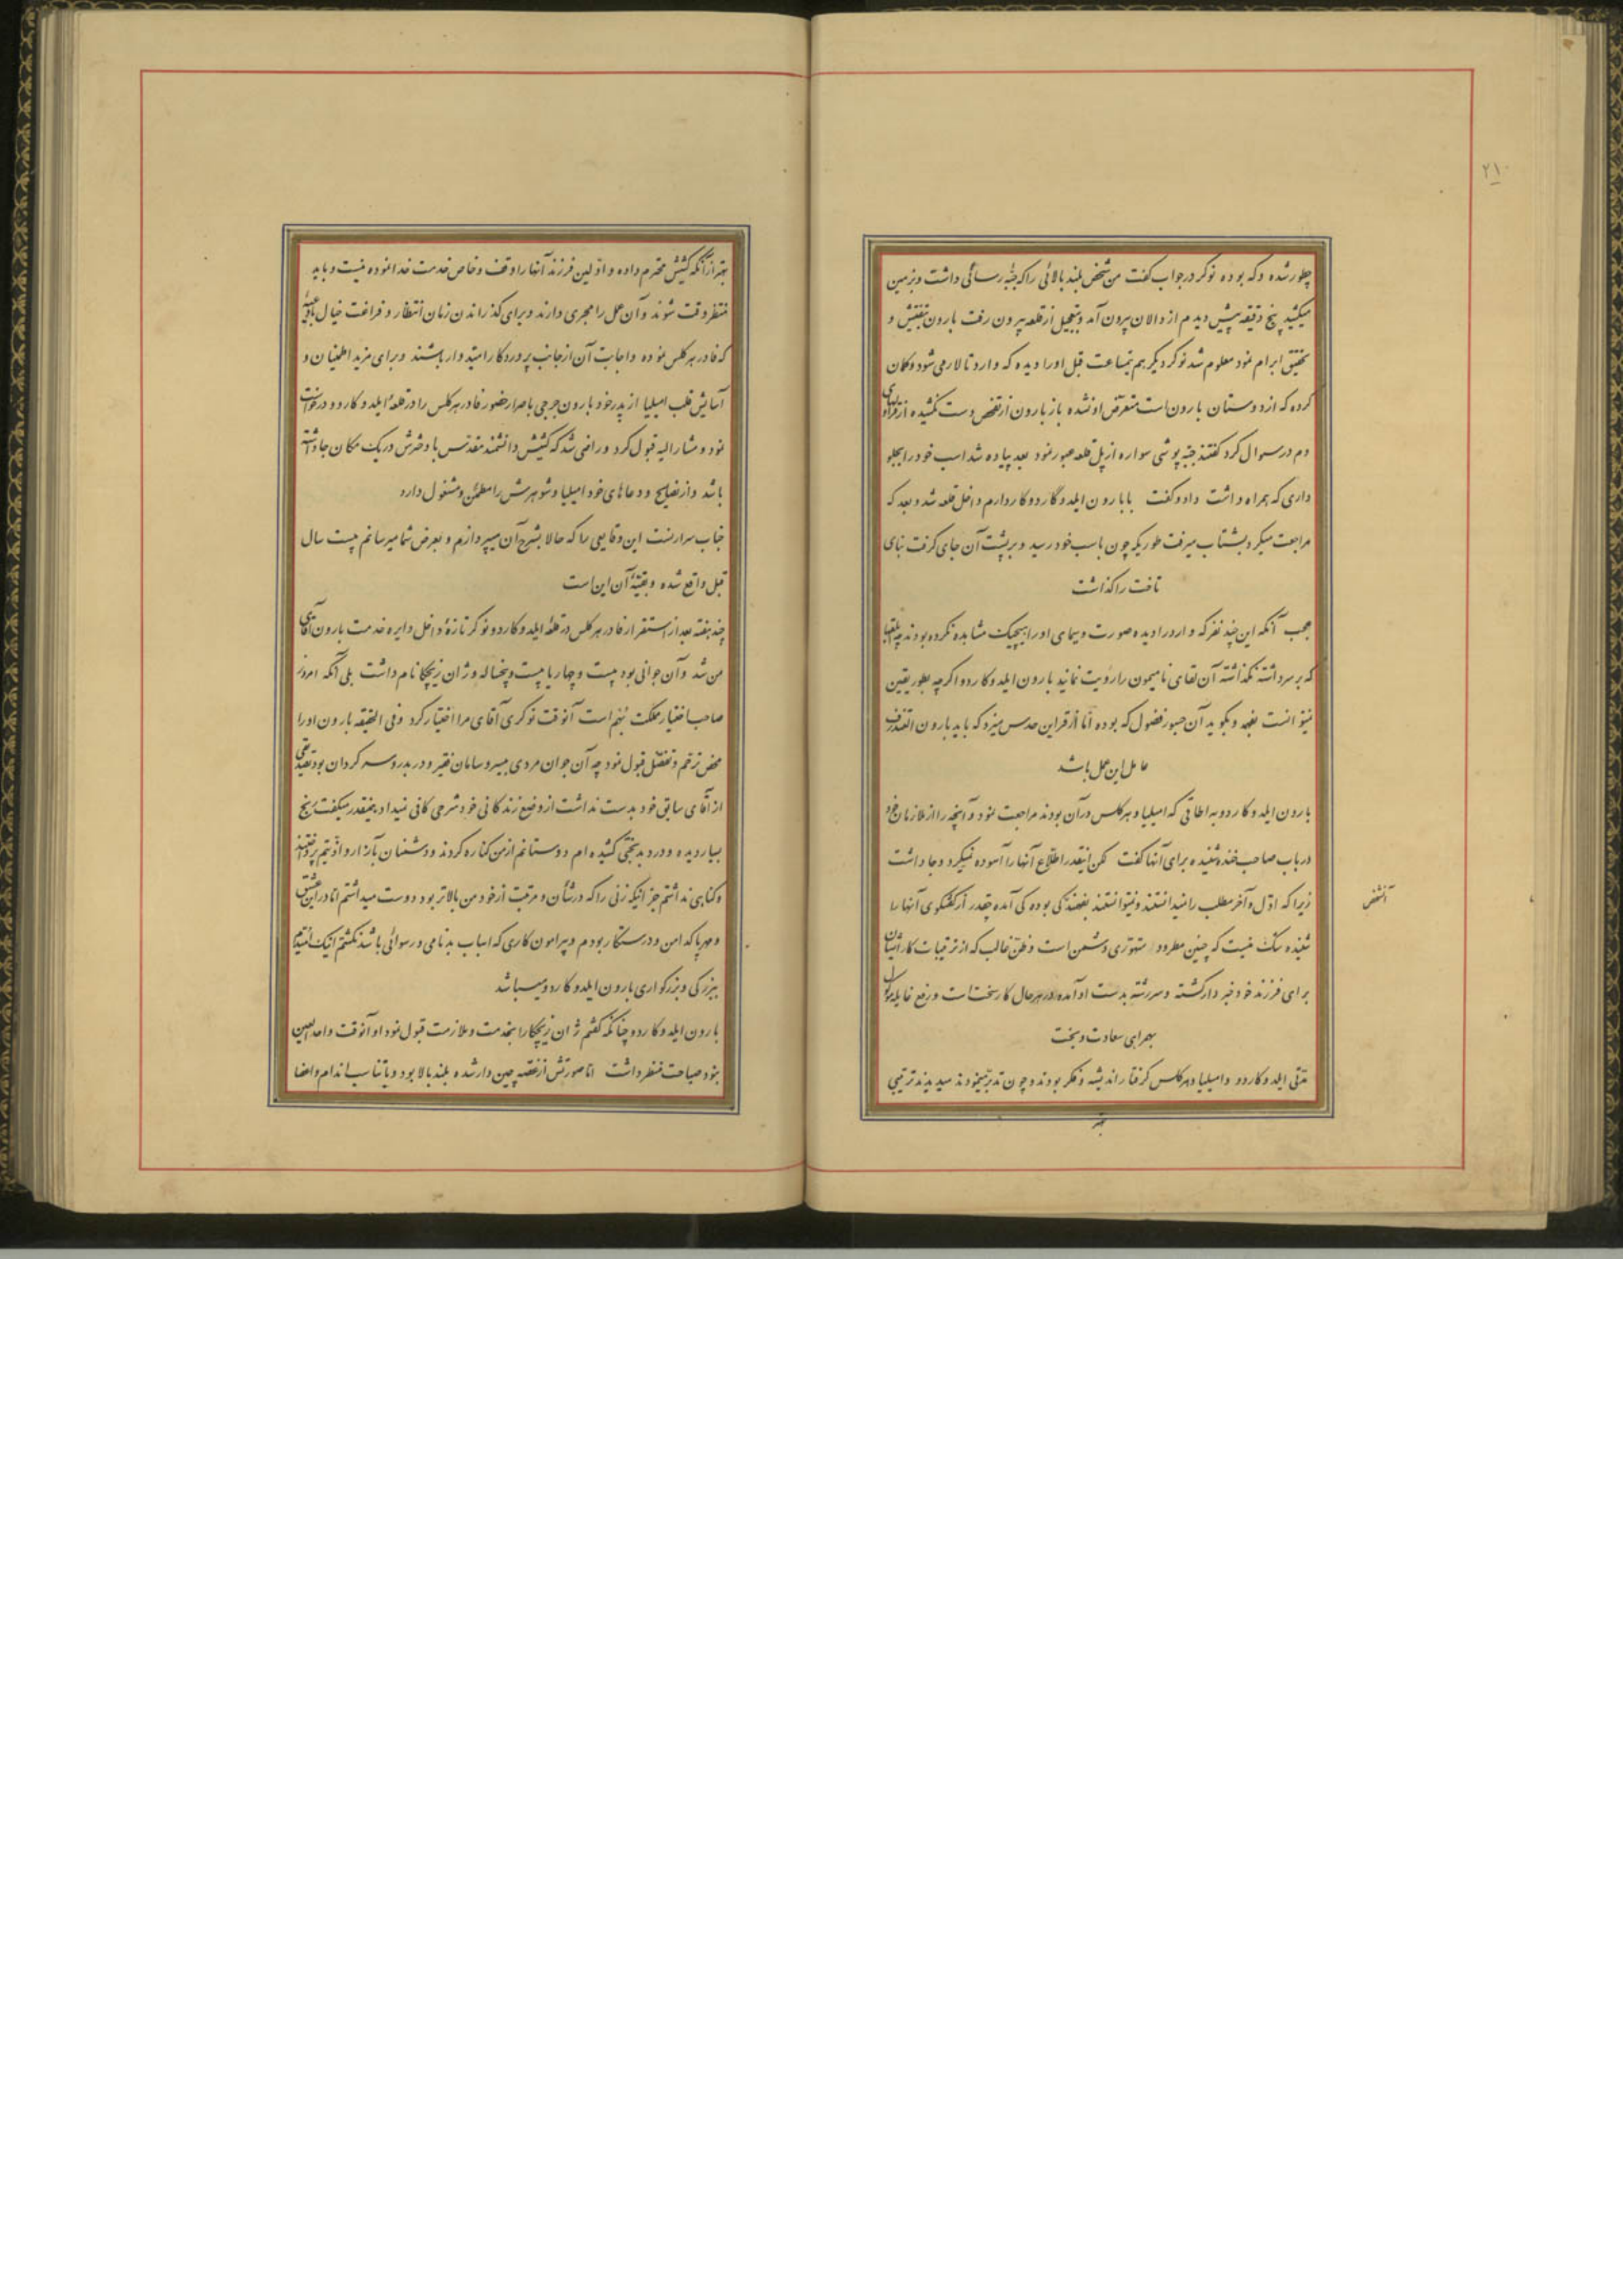 ۲۱۰
چطور شده و که بوده نوکر در جواب گفت من شخص بلند بالائی را که جبّه رسائی داشت و بزمین
میکشید پنج دقیقه پیش دیدم از دالان بیرون آمد و بتعجیل از قلعه بیرون رفت بارون بتفتیش و
تحقیق ابرام نمود معلوم شد نوکر دیگر هم نیمساعت قبل او را دیده که وارد تالار می شود و گمان
کرده که از دوستان بارون است متعرّض او نشده باز بارون از تفحّص دست نکشیده از قراولهای
دم در سوال کرد گفتند جبّه پوشی سواره از پل قلعه عبور نمود بعد پیاده شد اسب خود را بجلو
داری که همراه داشت داد و گفت با بارون ایلدوگاردو کار دارم داخل قلعه شد و بعد که
مراجعت میکرد بشتاب میرفت طوریکه چون باسب خود رسید و بر پشت آن جای گرفت بنای
تاخت را گذاشت
عجب آنکه این چند نفر که وارد را دیده صورت و سیمای او را هیچیک مشاهده نکرده بودند چه
که بر سر داشته نگذاشته آن لقای نامیمون را رؤیت نمایند بارون ایلدوکاردو اگرچه بطور یقین
نمیتوانست بفهمد و بگوید آن جسور فضول که بوده امّا از قراین حدس میزد که باید بارون
عامل این عمل باشد
بارون ایلدوکاردو به اطاقی که امیلیا و هرکلس در آن بودند مراجعت نمود و آنچه را از ملازمان خود
در باب صاحب خنده شنیده برای آنها گفت لکن اینقدر اطّلاع آنها را آسوده نمیکرد و جا داشت
زیرا که اوّل و آخر مطلب را نمیدانستند و نمیتوانستند بفهمند کی بوده کی آمده چقدر از گفتگوی آنها را
آنشخص
شنیده شک نیست که چنین مطرود متهوّری دشمن است و ظنّ غالب که از ترتیبات کار ایشان
برای فرزند خود خبردار گشته و سررشته بدست او آمده در هر حال کار سخت است و رفع غایله موکول
بهمراهی سعادت و بخت
مدّتی ایلدوکاردو و امیلیا و هرکلس گرفتار اندیشه و فکر بودند و چون تدبّر مینمودند میدیدند ترتیبی
بهتر
بهتر از آنکه کشیش محترم داده و اوّلین فرزند آنها را وقف و خاص خدمت خدا نموده نیست و باید
منتظر وقت شوند و آن عمل را مجری دارند و برای گذراندن زمان انتظار و فراغت خیال
که فادر هرکلس نموده و اجابت آن از جانب پروردگار امیدوار باشند و برای مزید اطمینان و
آسایش قلب امیلیا از پدر خود بارون جرجی باصرار حضور فادر هرکلس را در قلعهٔ ایلدوکاردو درخواست
نمود و مشارالیه قبول کرد و راضی شد که کشیش دانشمند مقدّس با دخترش در یک مکان جا داشته
باشد و از نصایح و دعاهای خود امیلیا و شوهرش را مطمئن و مشغول دارد
جناب سرارنست این وقایعی را که حالا بشرح آن میپردازم و بعرض شما میرسانم بیست سال
قبل واقع شده و بقیّهٔ آن این است
چند هفته بعد از استقرار فادر هرکلس در قلعهٔ ایلدوکاردو نوکر تازهٔ داخل دایره خدمت بارون آقای
من شد و آن جوانی بود بیست و چهار یا بیست و پنجساله و ژان زیچکا نام داشت بلی آنکه امروز
صاحب اختیار مملکت بُهم است آنوقت نوکری آقای مرا اختیار کرد و فی الحقیقه بارون او را
محض ترحّم و تفضّل قبول نمود چه آن جوان مردی بیسر و سامان فقیر و دربدر و سرگردان بود
از آقای سابق خود بدست نداشت از وضع زندگانی خود شرحی کافی نمیداد همینقدر میگفت رنج
بسیار دیده و درد بدبختی کشیده ام دوستانم از من کناره کردند و دشمنان بآزار و اذیّتم پرداختند
و گناهی نداشتم جز اینکه زنی را که در شأن و مرتبت از خود من بالاتر بود دوست میداشتم امّا در این عشق
و مهر پاکدامن و درستکار بودم و پیرامون کاری که اسباب بدنامی و رسوائی باشد نگشتم اینک امیدم
ببزرگی و بزرگواری بارون ایلدوکاردو میباشد
بارون ایلدوکاردو چنانکه گفتم ژان زیچکا را بخدمت و ملازمت قبول نمود او آنوقت واحد العین
نبود صباحت منظر داشت امّا صورتش از غصّه چین دار شده بلند بالا بود و با تناسب اندام و اعضا